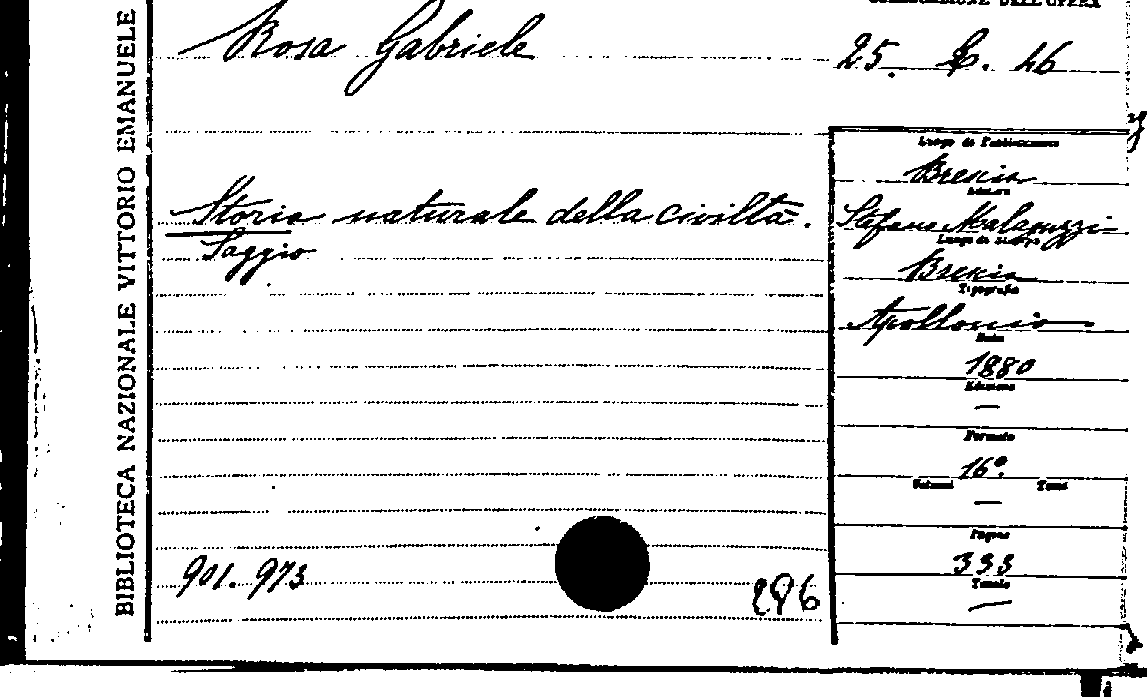 COLLOCAZIONE DELL'OPERA
Rosa Gabriele
25. L. 46
BIBLIOTECA NAZIONALE VITTORIO EMANUELE
Storia naturale della civiltà.
Saggio
Luogo di Pubblicazione
Brescia
Editore
Stefano Malaguzzi
Luogo di stampa
Brescia
Tipografia
Apollonio
Data
1880
Edizione
—
Formato
16º.
Volumi Tomi
—
Pagine
333
Tavole
—
901.973
286